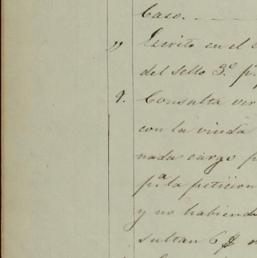 Caso.
" Escrito en el
del sello 3.º p.
9. Consulta ver
con la viuda
nada cargo p
p.ª la peticion
y no habiend
sultan 6 $